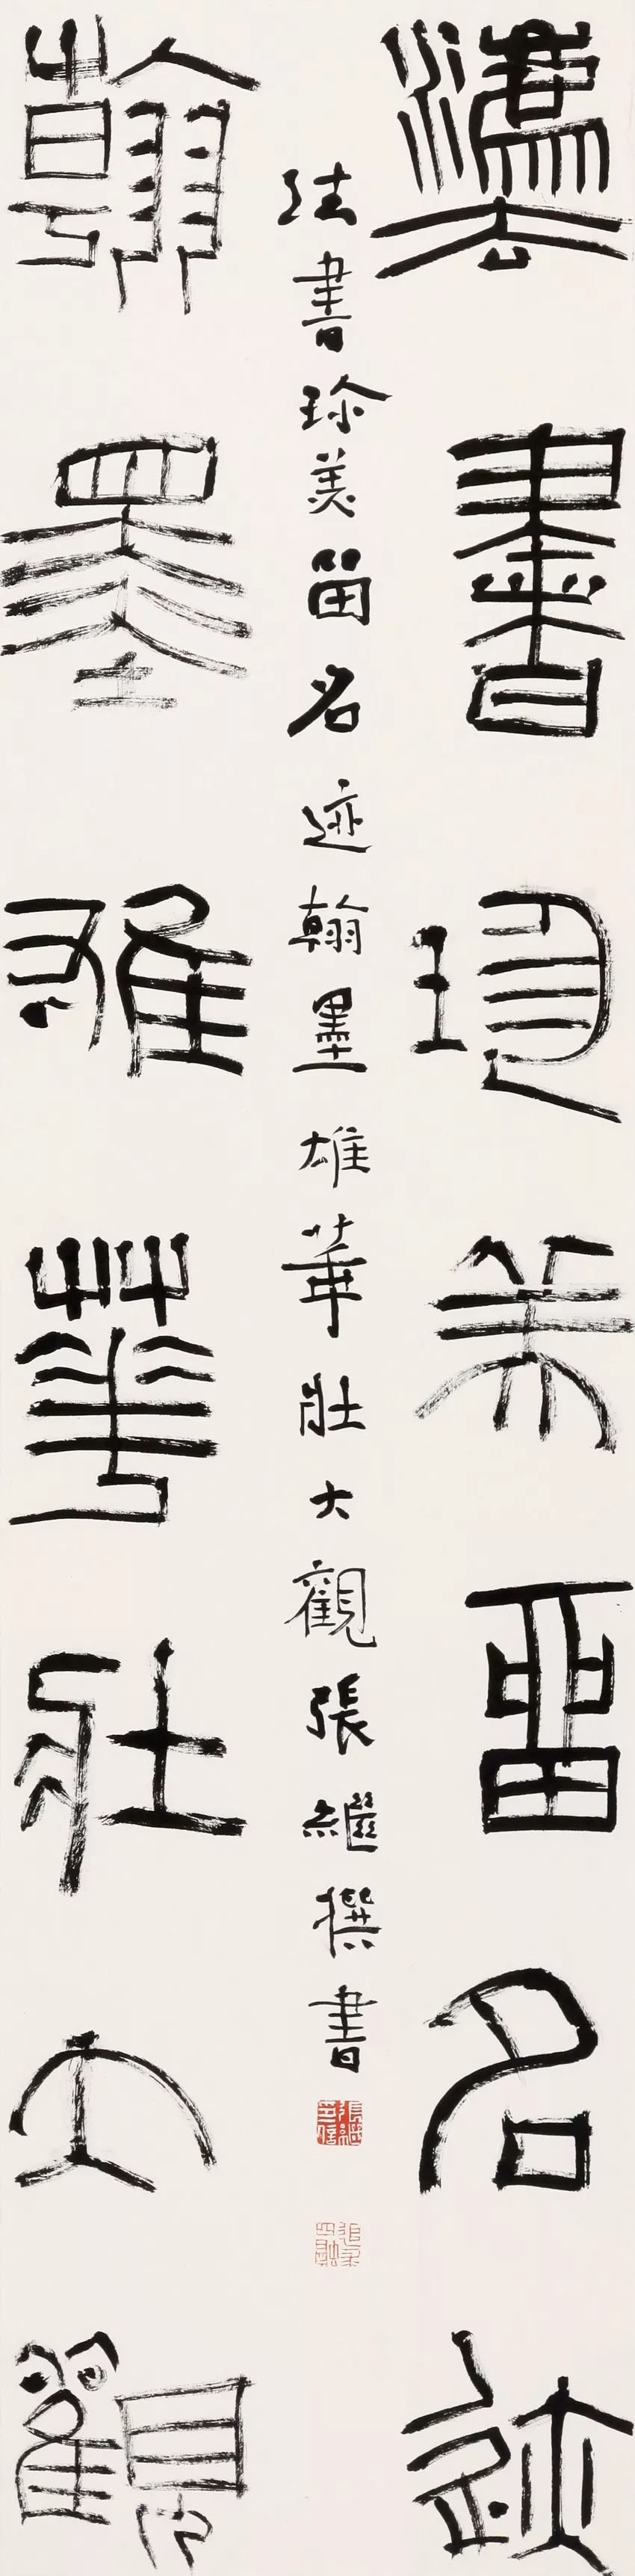 灋書珍美留名迹
法書珍美留名迹翰墨雄華壯大觀張繼撰書
翰墨雄華壯大觀